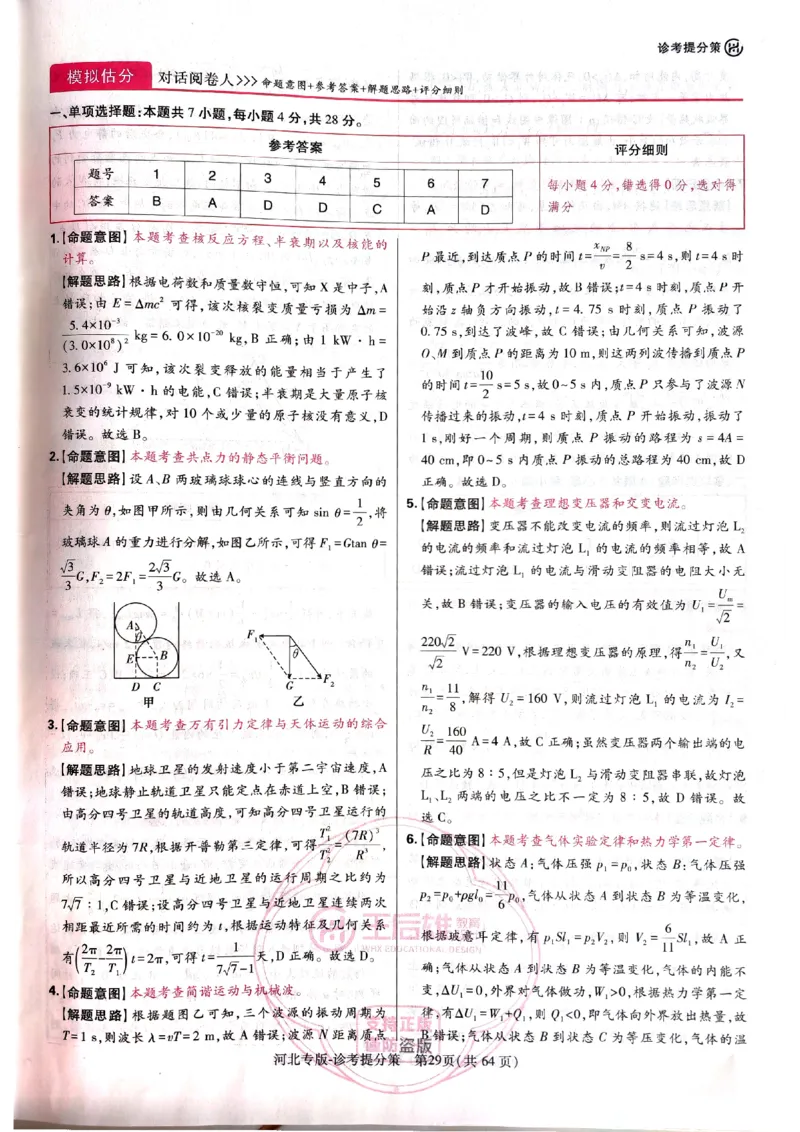 诊考提分策
模拟估分 对话阅卷人>>> 命题意图+参考答案+解题思路+评分细则
一、单项选择题:本题共7小题,每小题4分,共28分。
参考答案 评分细则
题号 1 2 3 4 5 6 7
答案 B A D D C A D
每小题4分,错选得0分,选对得
满分
1.【命题意图】本题考查核反应方程、半衰期以及核能的
计算。
【解题思路】根据电荷数和质量数守恒,可知X是中子,A
错误;由E=Δmc²可得,该次核裂变质量亏损为Δm=
5.4×10⁻³/(3.0×10⁸)² kg=6.0×10⁻²⁰ kg,B正确;由1 kW·h=
3.6×10⁶ J可知,该次裂变释放的能量相当于产生了
1.5×10⁻⁹ kW·h的电能,C错误;半衰期是大量原子核
衰变的统计规律,对10个或少量的原子核没有意义,D
错误。故选B。
2.【命题意图】本题考查共点力的静态平衡问题。
【解题思路】设A、B两玻璃球球心的连线与竖直方向的
夹角为θ,如图甲所示,则由几何关系可知sin θ=1/2,将
玻璃球A的重力进行分解,如图乙所示,可得F₁=Gtan θ=
√3/3 G,F₂=2F₁=2√3/3 G。故选A。
A
E B
D C
甲
F₁
θ
G F₂
乙
3.【命题意图】本题考查万有引力定律与天体运动的综合
应用。
【解题思路】地球卫星的发射速度小于第二宇宙速度,A
错误;地球静止轨道卫星只能定点在赤道上空,B错误;
由高分四号卫星的轨道高度,可知高分四号卫星运行的
轨道半径为7R,根据开普勒第三定律,可得T₁²/T₂²=(7R)³/R³,
所以高分四号卫星与近地卫星的运行周期之比约为
7√7:1,C错误;设高分四号卫星与近地卫星连续两次
相距最近所需的时间约为t,根据运动特征及几何关系
有(2π/T₂-2π/T₁)t=2π,可得t=1/(7√7-1)天,D正确。故选D。
4.【命题意图】本题考查简谐运动与机械波。
【解题思路】根据题图乙可知,三个波源的振动周期为
T=1 s,则波长λ=vT=2 m,故A错误;波源N距离质点
P最近,到达质点P的时间t=x_NP/v=8/2 s=4 s,则t=4 s时
刻,质点P才开始振动,故B错误;t=4 s时刻,质点P开
始沿z轴负方向振动,t=4.75 s时刻,质点P振动了
0.75 s,到达了波峰,故C错误;由几何关系可知,波源
O、M到质点P的距离为10 m,则这两列波传播到质点P
的时间t=10/2 s=5 s,故0~5 s内,质点P只参与了波源N
传播过来的振动,t=4 s时刻,质点P开始振动,振动了
1 s,刚好一个周期,则质点P振动的路程为s=4A=
40 cm,即0~5 s内质点P振动的总路程为40 cm,故D
正确。故选D。
5.【命题意图】本题考查理想变压器和交变电流。
【解题思路】变压器不能改变电流的频率,则流过灯泡L₂
的电流的频率和流过灯泡L₁的电流的频率相等,故A
错误;流过灯泡L₁的电流与滑动变阻器的电阻大小无
关,故B错误;变压器的输入电压的有效值为U₁=U_m/√2=
220√2/√2 V=220 V,根据理想变压器的原理,得n₁/n₂=U₁/U₂,又
n₁/n₂=11/8,解得U₂=160 V,则流过灯泡L₁的电流为I₂=
U₂/R=160/40 A=4 A,故C正确;虽然变压器两个输出端的电
压之比为8:5,但是灯泡L₂与滑动变阻器串联,故灯泡
L₁、L₂两端的电压之比不一定为8:5,故D错误。故
选C。
6.【命题意图】本题考查气体实验定律和热力学第一定律。
【解题思路】状态A:气体压强p₁=p₀,状态B:气体压强
p₂=p₀+ρgl₀=11/6 p₀,气体从状态A到状态B为等温变化,
根据玻意耳定律,有p₁Sl₁=p₂V₂,则V₂=6/11 Sl₁,故A正
确;气体从状态A到状态B为等温变化,气体的内能不
变,ΔU₁=0,外界对气体做功,W₁>0,根据热力学第一定
律,有ΔU₁=W₁+Q₁,则Q₁<0,即气体向外界放出热量,故
B错误;气体从状态B到状态C为等压变化,气体的温
王后雄教育
WHX EDUCATIONAL DESIGN
支持正版
谨防盗版
河北专版-诊考提分策 第29页(共64页)